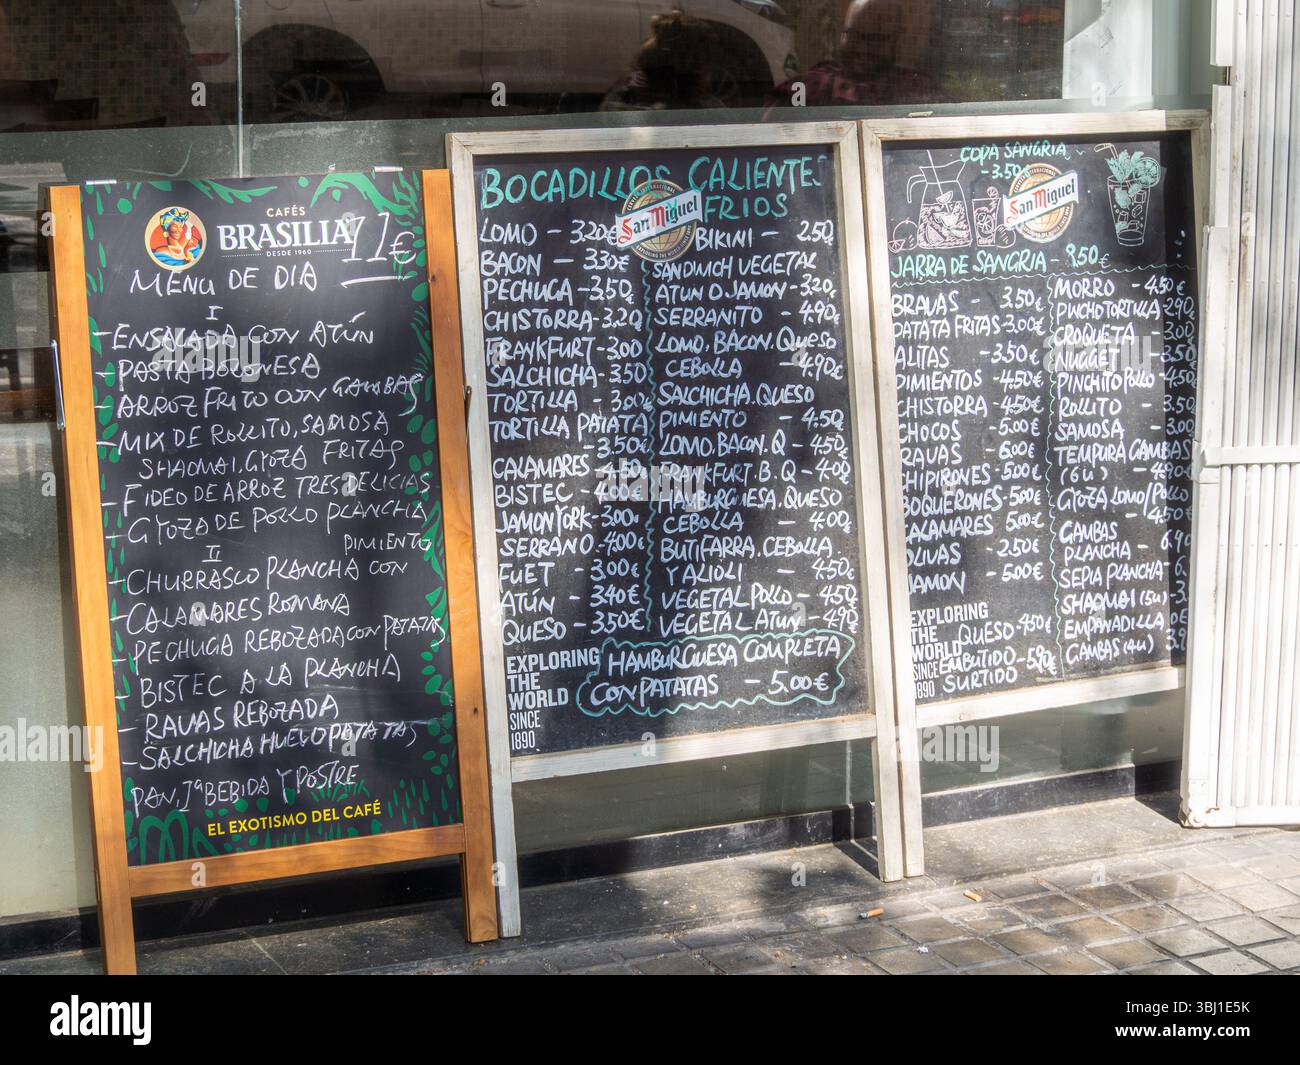 CAFÉS
BRASILIA
DESDE 1960
11€
MENU DE DIA
I
- ENSALADA CON ATÚN
- PASTA BOLONESA
- ARROZ FRITO CON GAMBAS
- MIX DE ROLLITO, SAMOSA
SHAOMAI, GYOZA FRITAS
- FIDEO DE ARROZ TRES DELICIAS
- GYOZA DE POLLO PLANCHA
II
PIMIENTO
- CHURRASCO PLANCHA CON
- CALAMARES ROMANA
- PECHUGA REBOZADA CON PATATAS
- BISTEC A LA PLANCHA
- RAVAS REBOZADA
- SALCHICHA HUEVO PATATAS
PAN, 1ª BEBIDA Y POSTRE
EL EXOTISMO DEL CAFÉ
BOCADILLOS CALIENTES
FRIOS
San Miguel
LOMO - 3.20€
BACON - 3.30€
PECHUGA - 3.50€
CHISTORRA - 3.20€
FRANKFURT - 3.00
SALCHICHA - 3.50
TORTILLA - 3.00€
TORTILLA PATATA
3.50€
CALAMARES - 4.50
BISTEC - 4.00€
JAMON YORK - 3.00€
SERRANO - 4.00€
FUET - 3.00€
ATÚN - 3.40€
QUESO - 3.50€
BIKINI - 2.50€
SANDWICH VEGETAL
ATUN O JAMON - 3.20€
SERRANITO - 4.90€
LOMO, BACON, QUESO
CEBOLLA - 4.90€
SALCHICHA. QUESO
PIMIENTO - 4.50€
LOMO, BACON. Q - 4.50€
FRANKFURT. B. Q - 4.00€
HAMBURGUESA. QUESO
CEBOLLA - 4.00€
BUTIFARRA. CEBOLLA
Y ALIOLI - 4.50€
VEGETAL POLLO - 4.50€
VEGETAL ATUN - 4.90€
EXPLORING
THE
WORLD
SINCE
1890
HAMBURGUESA COMPLETA
CON PATATAS - 5.00€
COPA SANGRIA
- 3.50€
San Miguel
JARRA DE SANGRIA - 9.50€
BRAVAS - 3.50€
PATATA FRITAS - 3.00€
ALITAS - 3.50€
PIMIENTOS - 4.50€
CHISTORRA - 4.50€
CHOCOS - 5.00€
RAVAS - 6.00€
CHIPIRONES - 5.00€
BOQUERONES - 5.00€
CALAMARES - 5.00€
OLIVAS - 2.50€
JAMON - 5.00€
QUESO - 4.50€
EMBUTIDO - 5.90€
SURTIDO
EXPLORING
THE
WORLD
SINCE
1890
MORRO - 4.50€
PINCHO TORTILLA - 2.90€
CROQUETA - 3.00
NUGGET - 3.50
PINCHITO POLLO - 4.50€
ROLLITO - 3.50
SAMOSA - 3.00
TEMPURA GAMBAS
(6U) - 4.90€
GYOZA LOMO/POLLO
- 4.50€
GAMBAS
PLANCHA - 6.90
SEPIA PLANCHA -
SHAOMAI (5U)
EMPANADILLA
GAMBAS (4U) 3.9